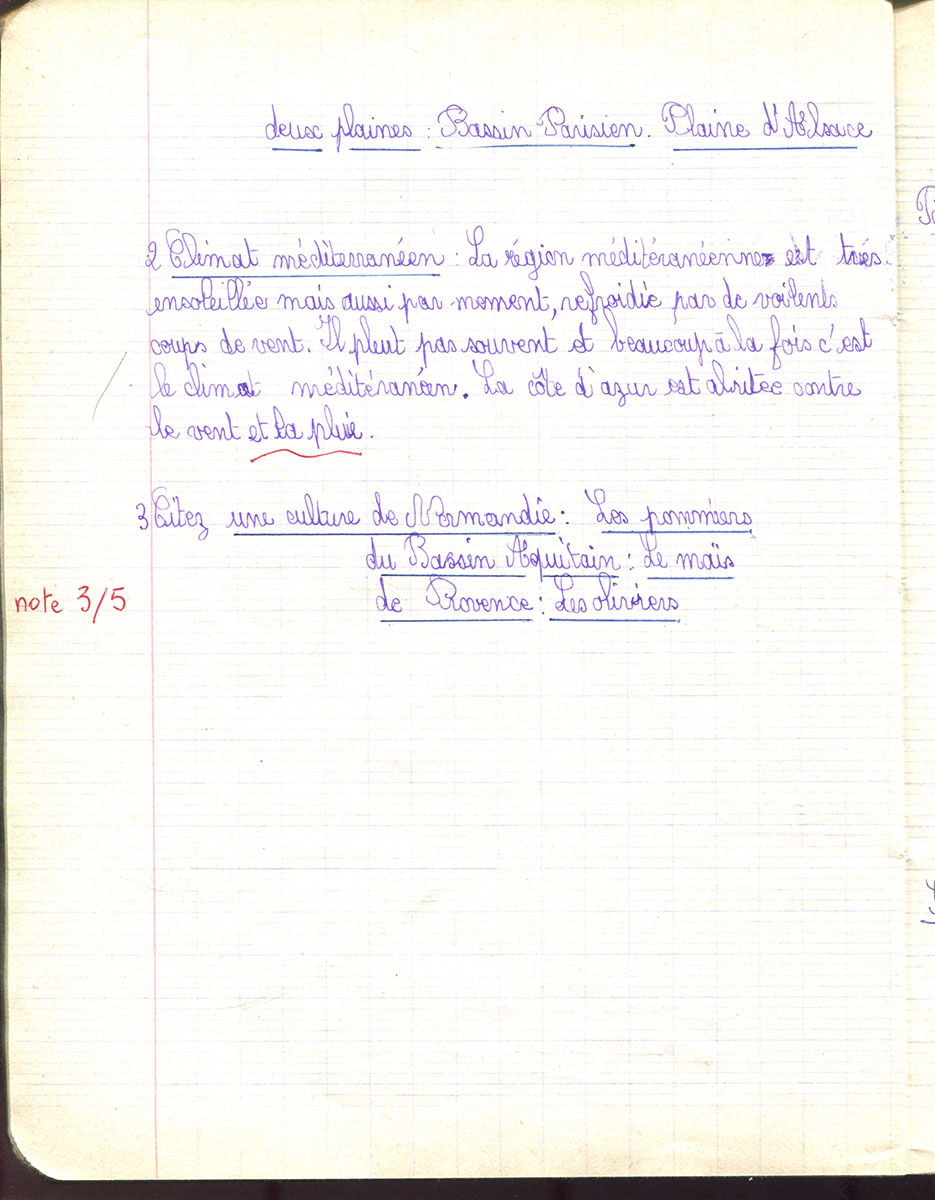 deux plaines : Bassin Parisien. Plaine d'Alsace
2 Climat méditerranéen : La région méditéranéenne est très
ensoleillée mais aussi par moment, refroidie par de voilents
coups de vent. Il pleut pas souvent et beaucoup à la fois c'est
le climat méditéranéen. La côte d'azur est abritée contre
le vent et la pluie.
3 Citez une culture de Normandie : Les pommiers
du Bassin Aquitain : Le maïs
note 3/5 de Provence : Les oliviers